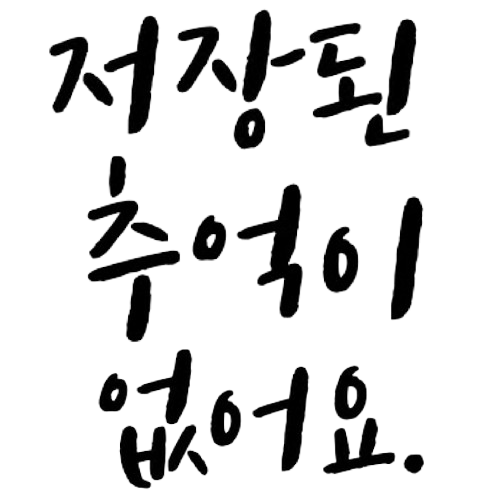 저장된
추억이
없어요.